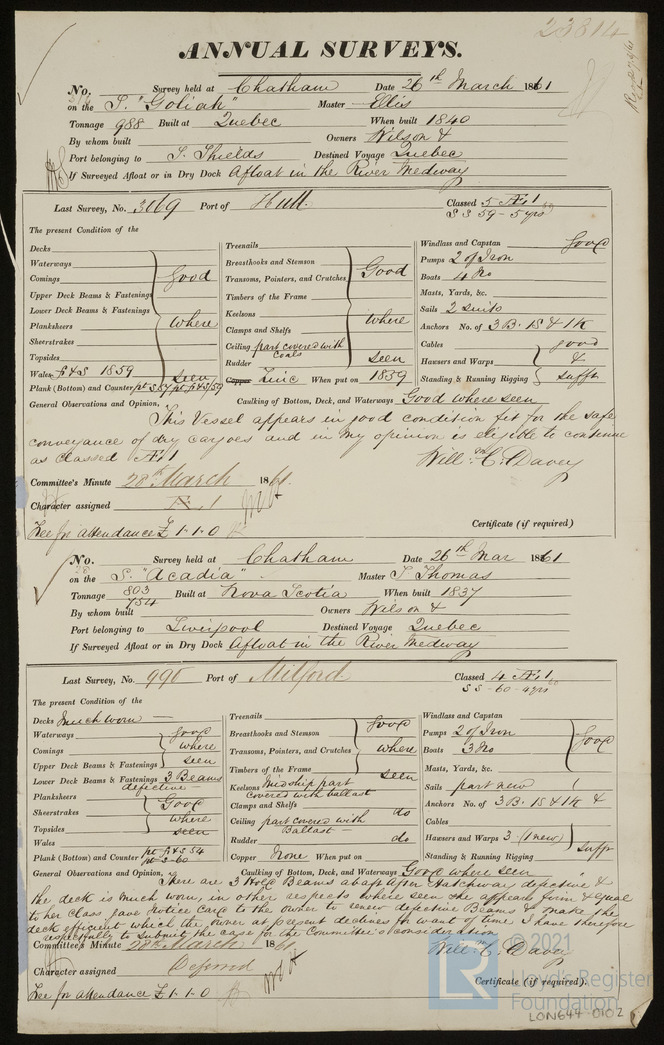 23814
ANNUAL SURVEYS.
No. Survey held at Chatham Date 26th March 1861
on the S. "Goliah" Master Ellis
Tonnage 988 Built at Quebec When built 1840
By whom built Owners Wilson &
Port belonging to S. Shields Destined Voyage Quebec
If Surveyed Afloat or in Dry Dock Afloat in the River Medway
Last Survey, No. 3669 Port of Hull. Classed 5 Æ 1
SS 59 - 5 yrs
The present Condition of the
Decks
Waterways
Comings Good
Upper Deck Beams & Fastenings
Lower Deck Beams & Fastenings
Planksheers where
Sheerstrakes
Topsides
Wales pt S 1859 seen
Plank (Bottom) and Counter
Treenails
Breasthooks and Stemson
Transoms, Pointers, and Crutches Good
Timbers of the Frame
Keelsons where
Clamps and Shelfs
Ceiling part covered with coals
Rudder seen
Copper Zinc When put on 1859
Windlass and Capstan good
Pumps 2 of Iron
Boats 4 No
Masts, Yards, &c.
Sails 2 suits
Anchors No. of 3 B. 1S & 1K
Cables good
Hawsers and Warps &
Standing & Running Rigging sufft
General Observations and Opinion, Caulking of Bottom, Deck, and Waterways Good where seen
This Vessel appears in good condition fit for the safe
conveyance of dry cargoes and in my opinion is eligible to continue
as Classed Æ 1 Willm C. Davey
Committee's Minute 28th March 1861.
Character assigned Æ 1
Fee for attendance £ 1-1-0 Certificate (if required)
No. Survey held at Chatham Date 26th Mar 1861
on the S. "Acadia" Master T Thomas
Tonnage 803 Built at Nova Scotia When built 1837
754
By whom built Owners Wilson &
Port belonging to Liverpool Destined Voyage Quebec
If Surveyed Afloat or in Dry Dock Afloat in the River Medway
Last Survey, No. 990 Port of Milford Classed 4 Æ 1
SS - 60 - 4 yrs
The present Condition of the
Decks Much worn
Waterways good
Comings where
Upper Deck Beams & Fastenings seen
Lower Deck Beams & Fastenings 3 Beams
defective
Planksheers Good
Sheerstrakes where
Topsides seen
Wales
Plank (Bottom) and Counter
Treenails good
Breasthooks and Stemson
Transoms, Pointers, and Crutches where
Timbers of the Frame seen
Keelsons Midship part
covered with ballast
Clamps and Shelfs do
Ceiling part covered with
Ballast
Rudder do
Copper None When put on
Windlass and Capstan
Pumps 2 of Iron good
Boats 3 No
Masts, Yards, &c.
Sails part new
Anchors No. of 3 B. 1S & 1K &
Cables
Hawsers and Warps 3 (1 new) sufft
Standing & Running Rigging
General Observations and Opinion, Caulking of Bottom, Deck, and Waterways Good where seen
There are 3 Hold Beams abaft After Hatchway defective &
the deck is much worn, in other respects where seen she appears firm & equal
to her class gave notice to the owner to renew defective Beams & make the
deck efficient which the owner at present declines for want of time I have therefore
respectfully to submit the case for the Committee's consideration
Committee's Minute 28th March 1861 Willm C. Davey
Character assigned Deferred
Fee for attendance £ 1-1-0 Certificate (if required).
LR
© 2021
Lloyd's Register
Foundation
LON644-0102